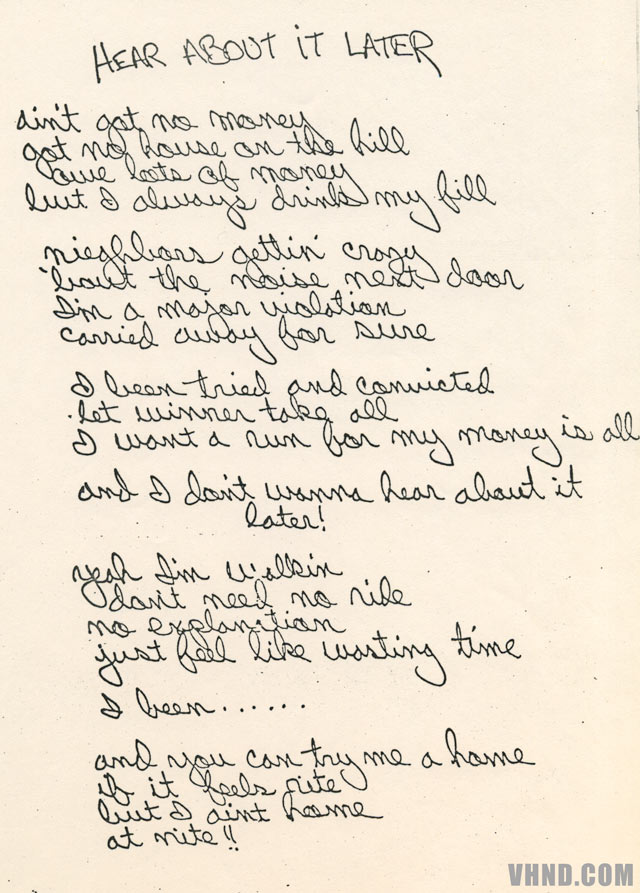 HEAR ABOUT IT LATER
ain't got no money
got no house on the hill
owe lots of money
but I always drink my fill
nieghbors gettin' crazy
'bout the noise next door
I'm a major violation
carried away for sure
I been tried and convicted
let winner take all
I want a run for my money is all
and I don't wanna hear about it
later!
yeah I'm walkin
don't need no ride
no explanation
just feel like wasting time
I been......
and you can try me a home
if it feels rite
but I aint home
at nite!!
VHND.COM